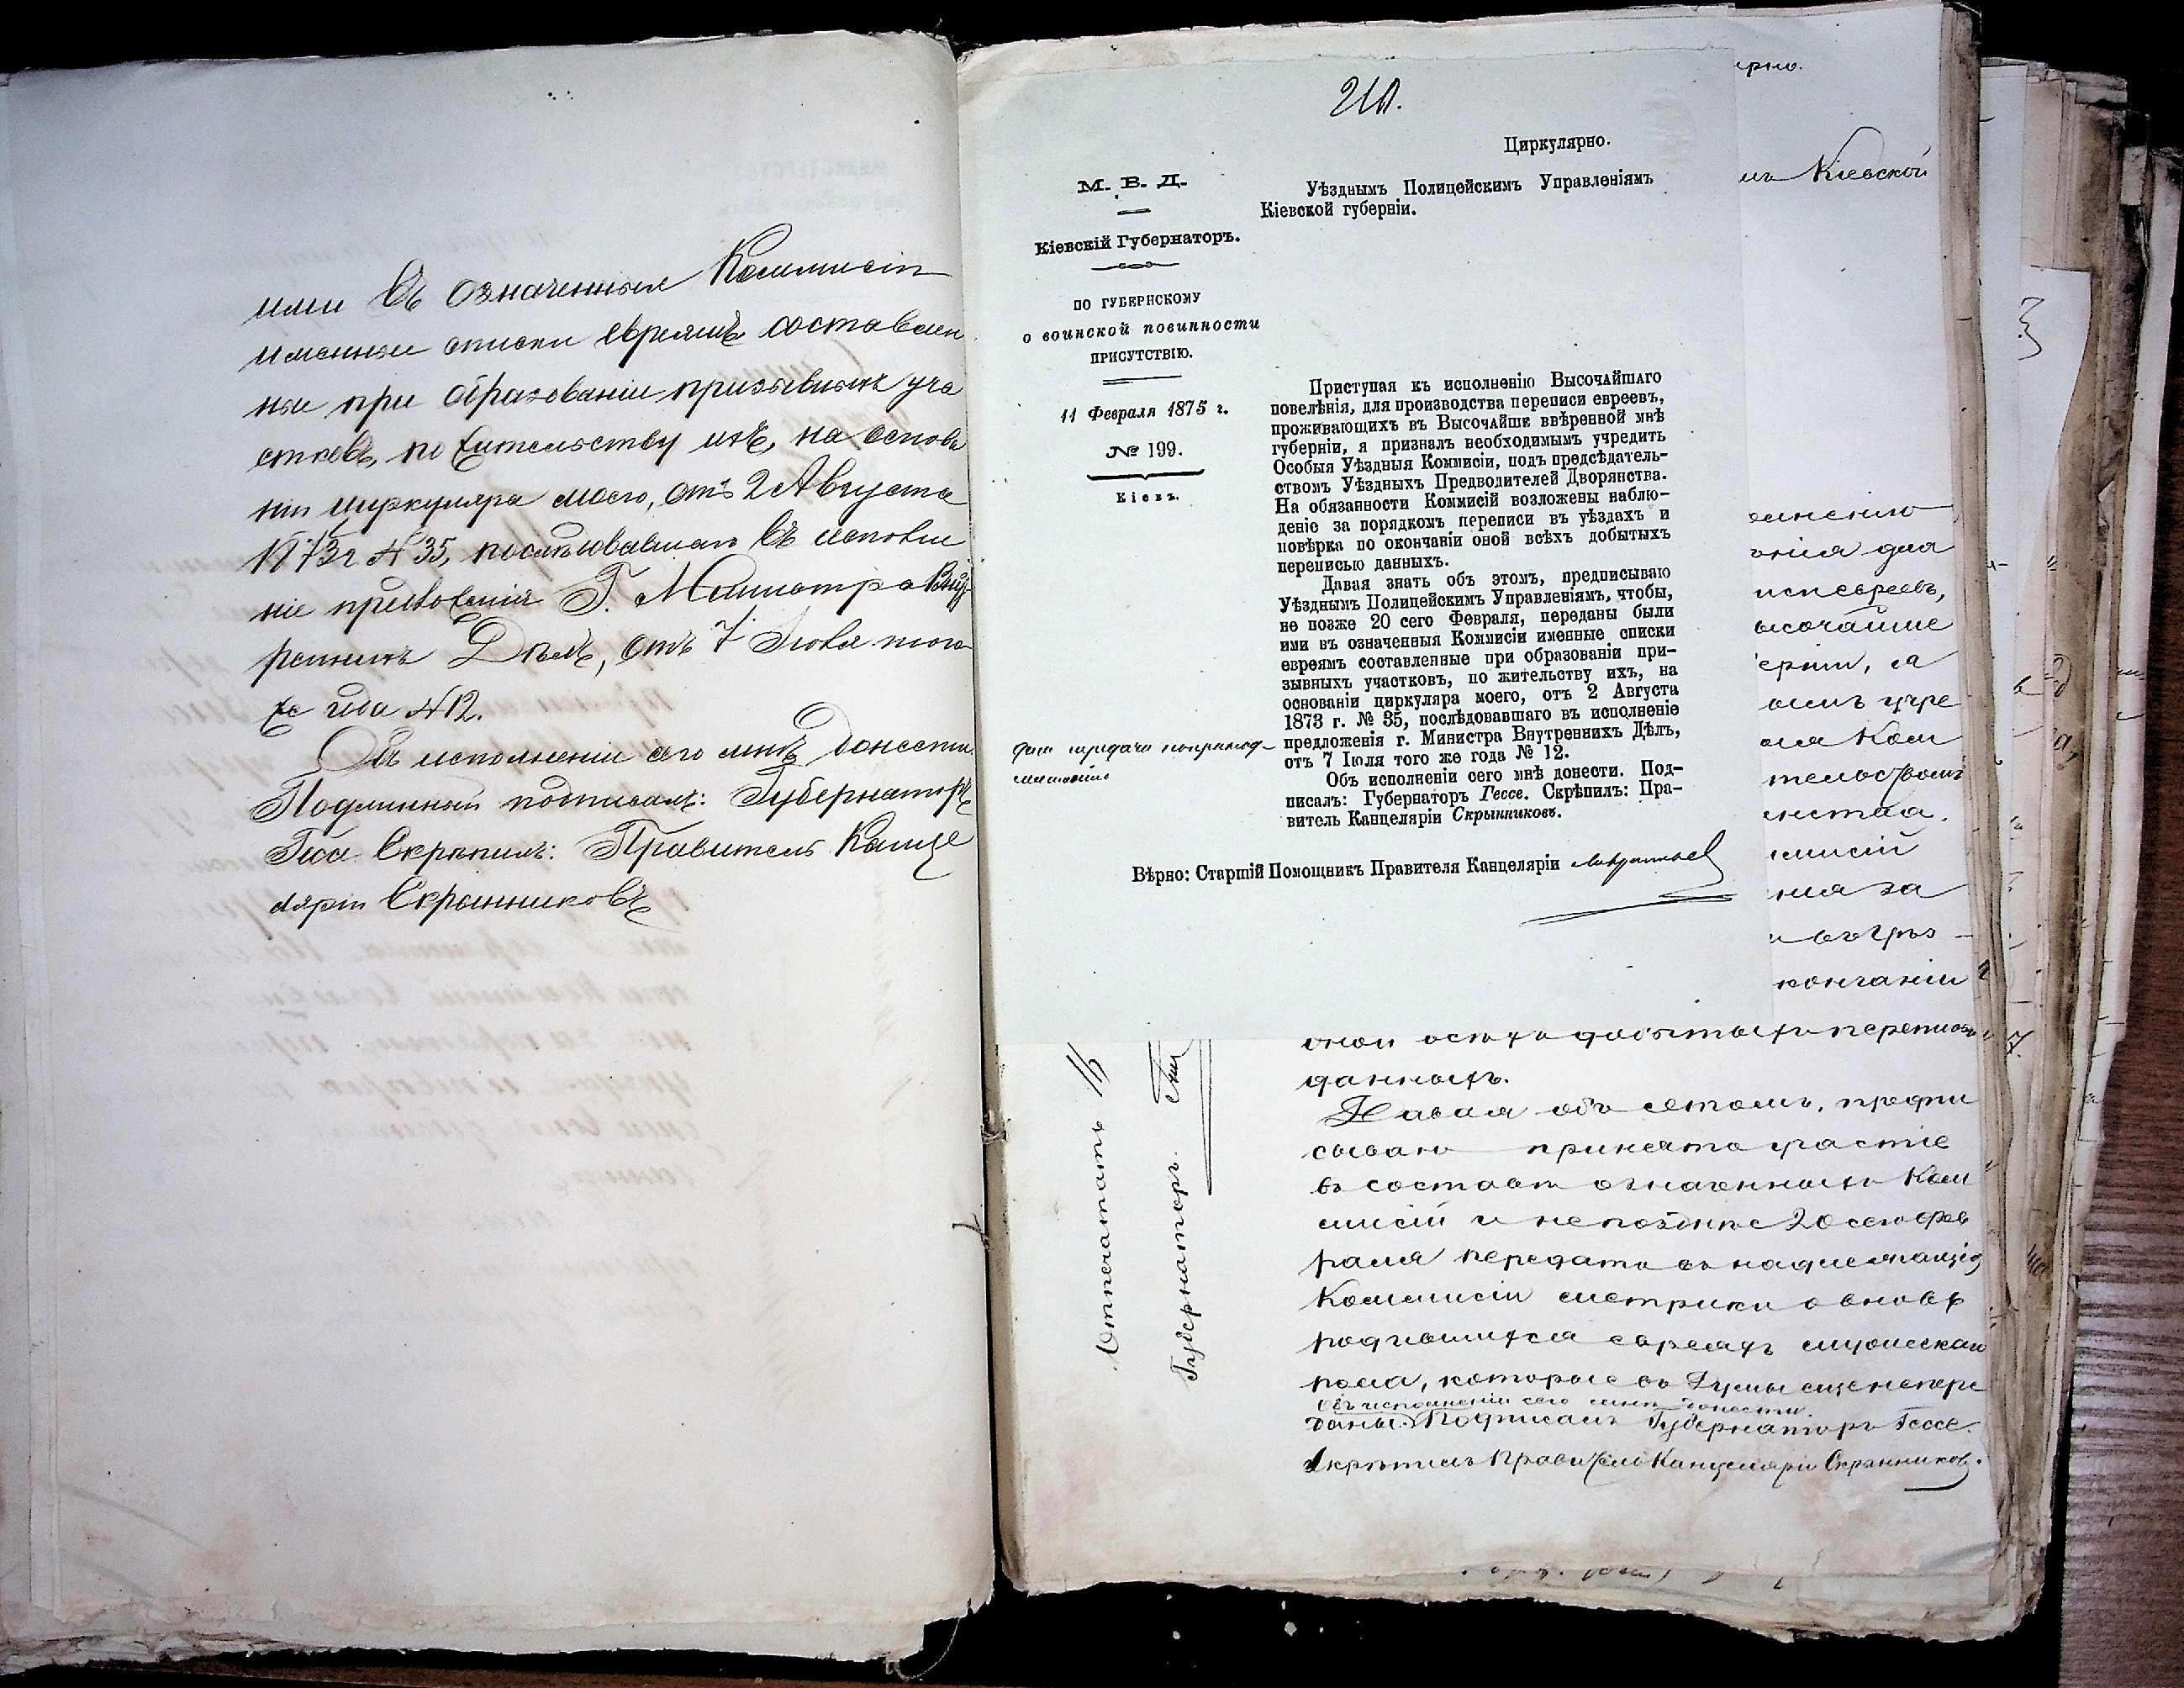 ими въ означенныя Коммисіи
именные списки евреямъ составлен
ные при образованіи призывныхъ уча
стковъ, по жительству ихъ, на основа
ніи циркуляра моего, отъ 2 Августа
1873 г № 35, послѣдовавшаго въ исполне
ніе предложенія Г. Министра Внут
реннихъ Дѣлъ, отъ 7 Іюля того
же года № 12.
Объ исполненіи сего мнѣ донести.
Подлинный подписалъ: Губернаторъ
Скрѣпилъ: Правитель Канце
ляріи Скрынниковъ
Циркулярно.
М. В. Д.
Кіевскій Губернаторъ.
ПО ГУБЕРНСКОМУ
о воинской повинности
ПРИСУТСТВІЮ.
11 Февраля 1875 г.
№ 199.
Кіевъ.
Уѣзднымъ Полицейскимъ Управленіямъ
Кіевской губерніи.
Приступая къ исполненію Высочайшаго
повелѣнія, для производства переписи евреевъ,
проживающихъ въ Высочайше ввѣренной мнѣ
губерніи, я призналъ необходимымъ учредить
Особыя Уѣздныя Коммисіи, подъ предсѣдатель-
ствомъ Уѣздныхъ Предводителей Дворянства.
На обязанности Коммисій возложены наблю-
деніе за порядкомъ переписи въ уѣздахъ и
повѣрка по окончаніи оной всѣхъ добытыхъ
переписью данныхъ.
Давая знать объ этомъ, предписываю
Уѣзднымъ Полицейскимъ Управленіямъ, чтобы,
не позже 20 сего Февраля, переданы были
ими въ означенныя Коммисіи именные списки
евреямъ составленные при образованіи при-
зывныхъ участковъ, по жительству ихъ, на
основаніи циркуляра моего, отъ 2 Августа
1873 г. № 35, послѣдовавшаго въ исполненіе
предложенія г. Министра Внутреннихъ Дѣлъ,
отъ 7 Іюля того же года № 12.
Объ исполненіи сего мнѣ донести. Под-
писалъ: Губернаторъ Гессе. Скрѣпилъ: Пра-
витель Канцеляріи Скрынниковъ.
Вѣрно: Старшій Помощникъ Правителя Канцеляріи
Кіевской
евреевъ,
кончаніи
оной всѣхъ добытыхъ переписью
данныхъ.
Давая объ этомъ, предпи
сываю принять участіе
въ составѣ означенныхъ Ком
мисій и не позднѣе 20 сего фев
раля передать въ надлежащія
Коммисіи метрики о вновь
родившихся евреяхъ мужескаго
пола, которые въ Думы еще не пере
Объ исполненіи сего мнѣ донести.
даны. Подписалъ Губернаторъ Гессе.
Скрѣпилъ Правитель Канцеляріи Скрынниковъ.
Отпечатать
Губернаторъ.